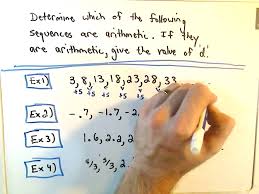 Determine which of the following
sequences are arithmetic. If they
are arithmetic, give the value of 'd'.
Ex1) 3, 8, 13, 18, 23, 28, 33
+5 +5 +5 +5 +5
Ex2) -.7, -1.7, -2.
Ex3) 1.6, 2.2, 2
Ex4) 4/3, 5/3, 2